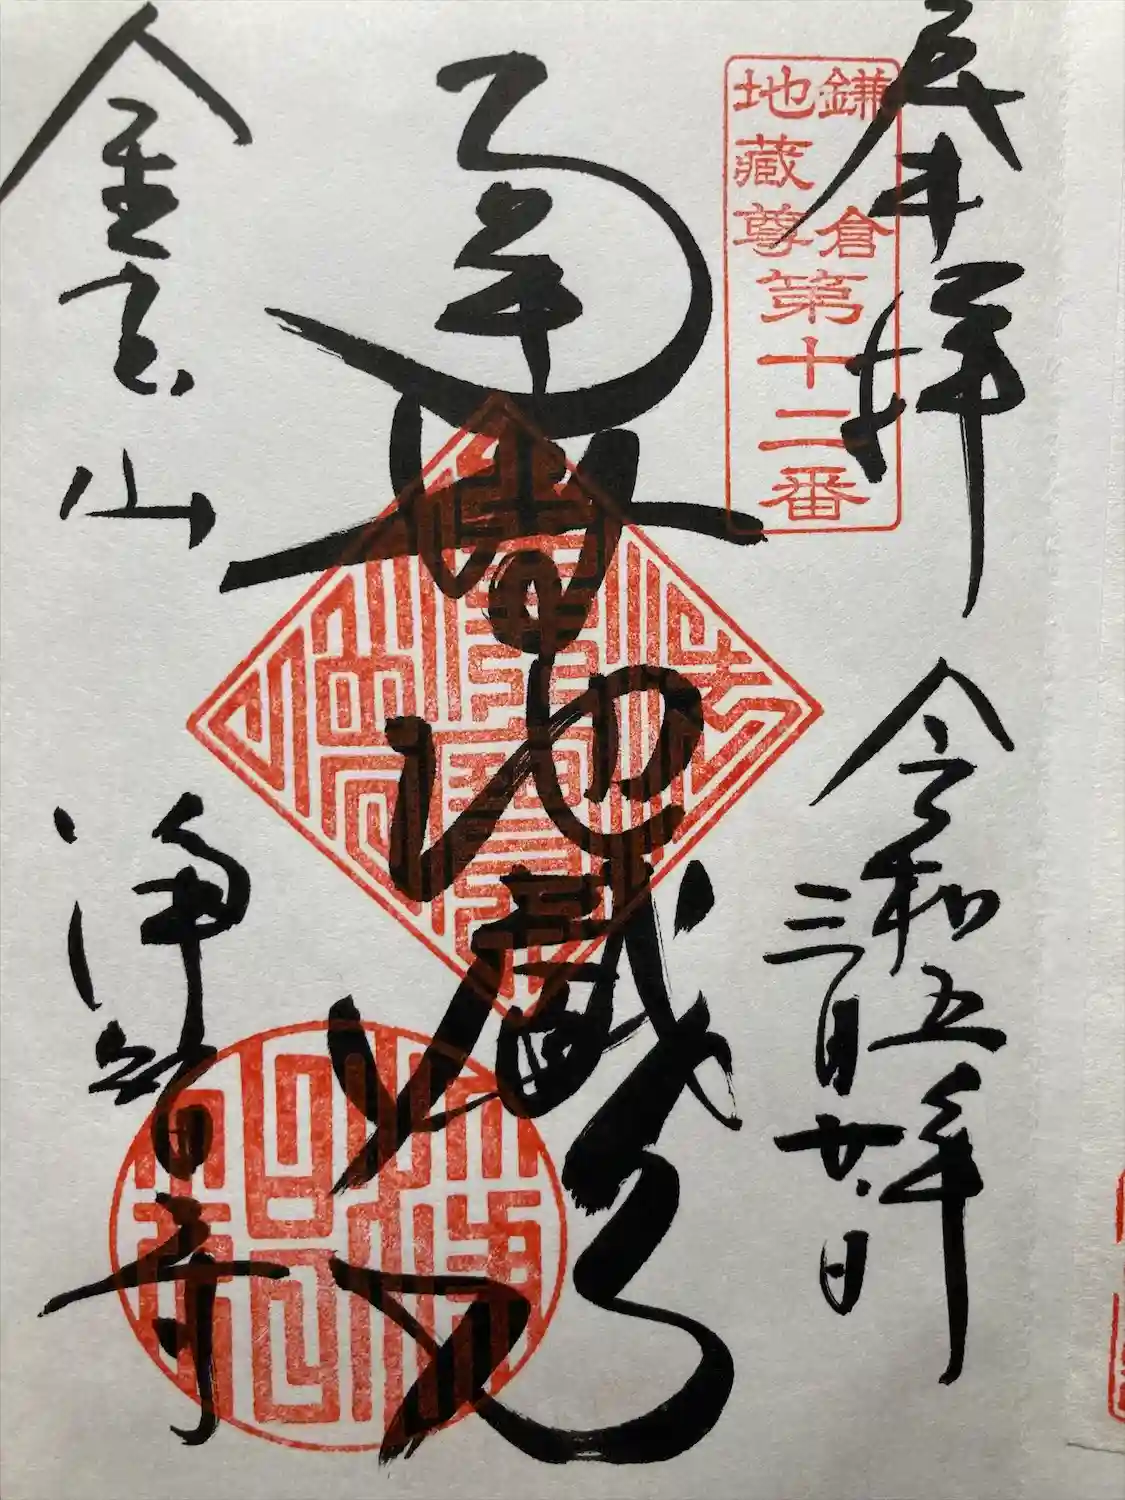 奉拝
鎌倉
地蔵尊
第十二番
令和五年
三月廿日
南無地蔵
金宝山
浄智寺